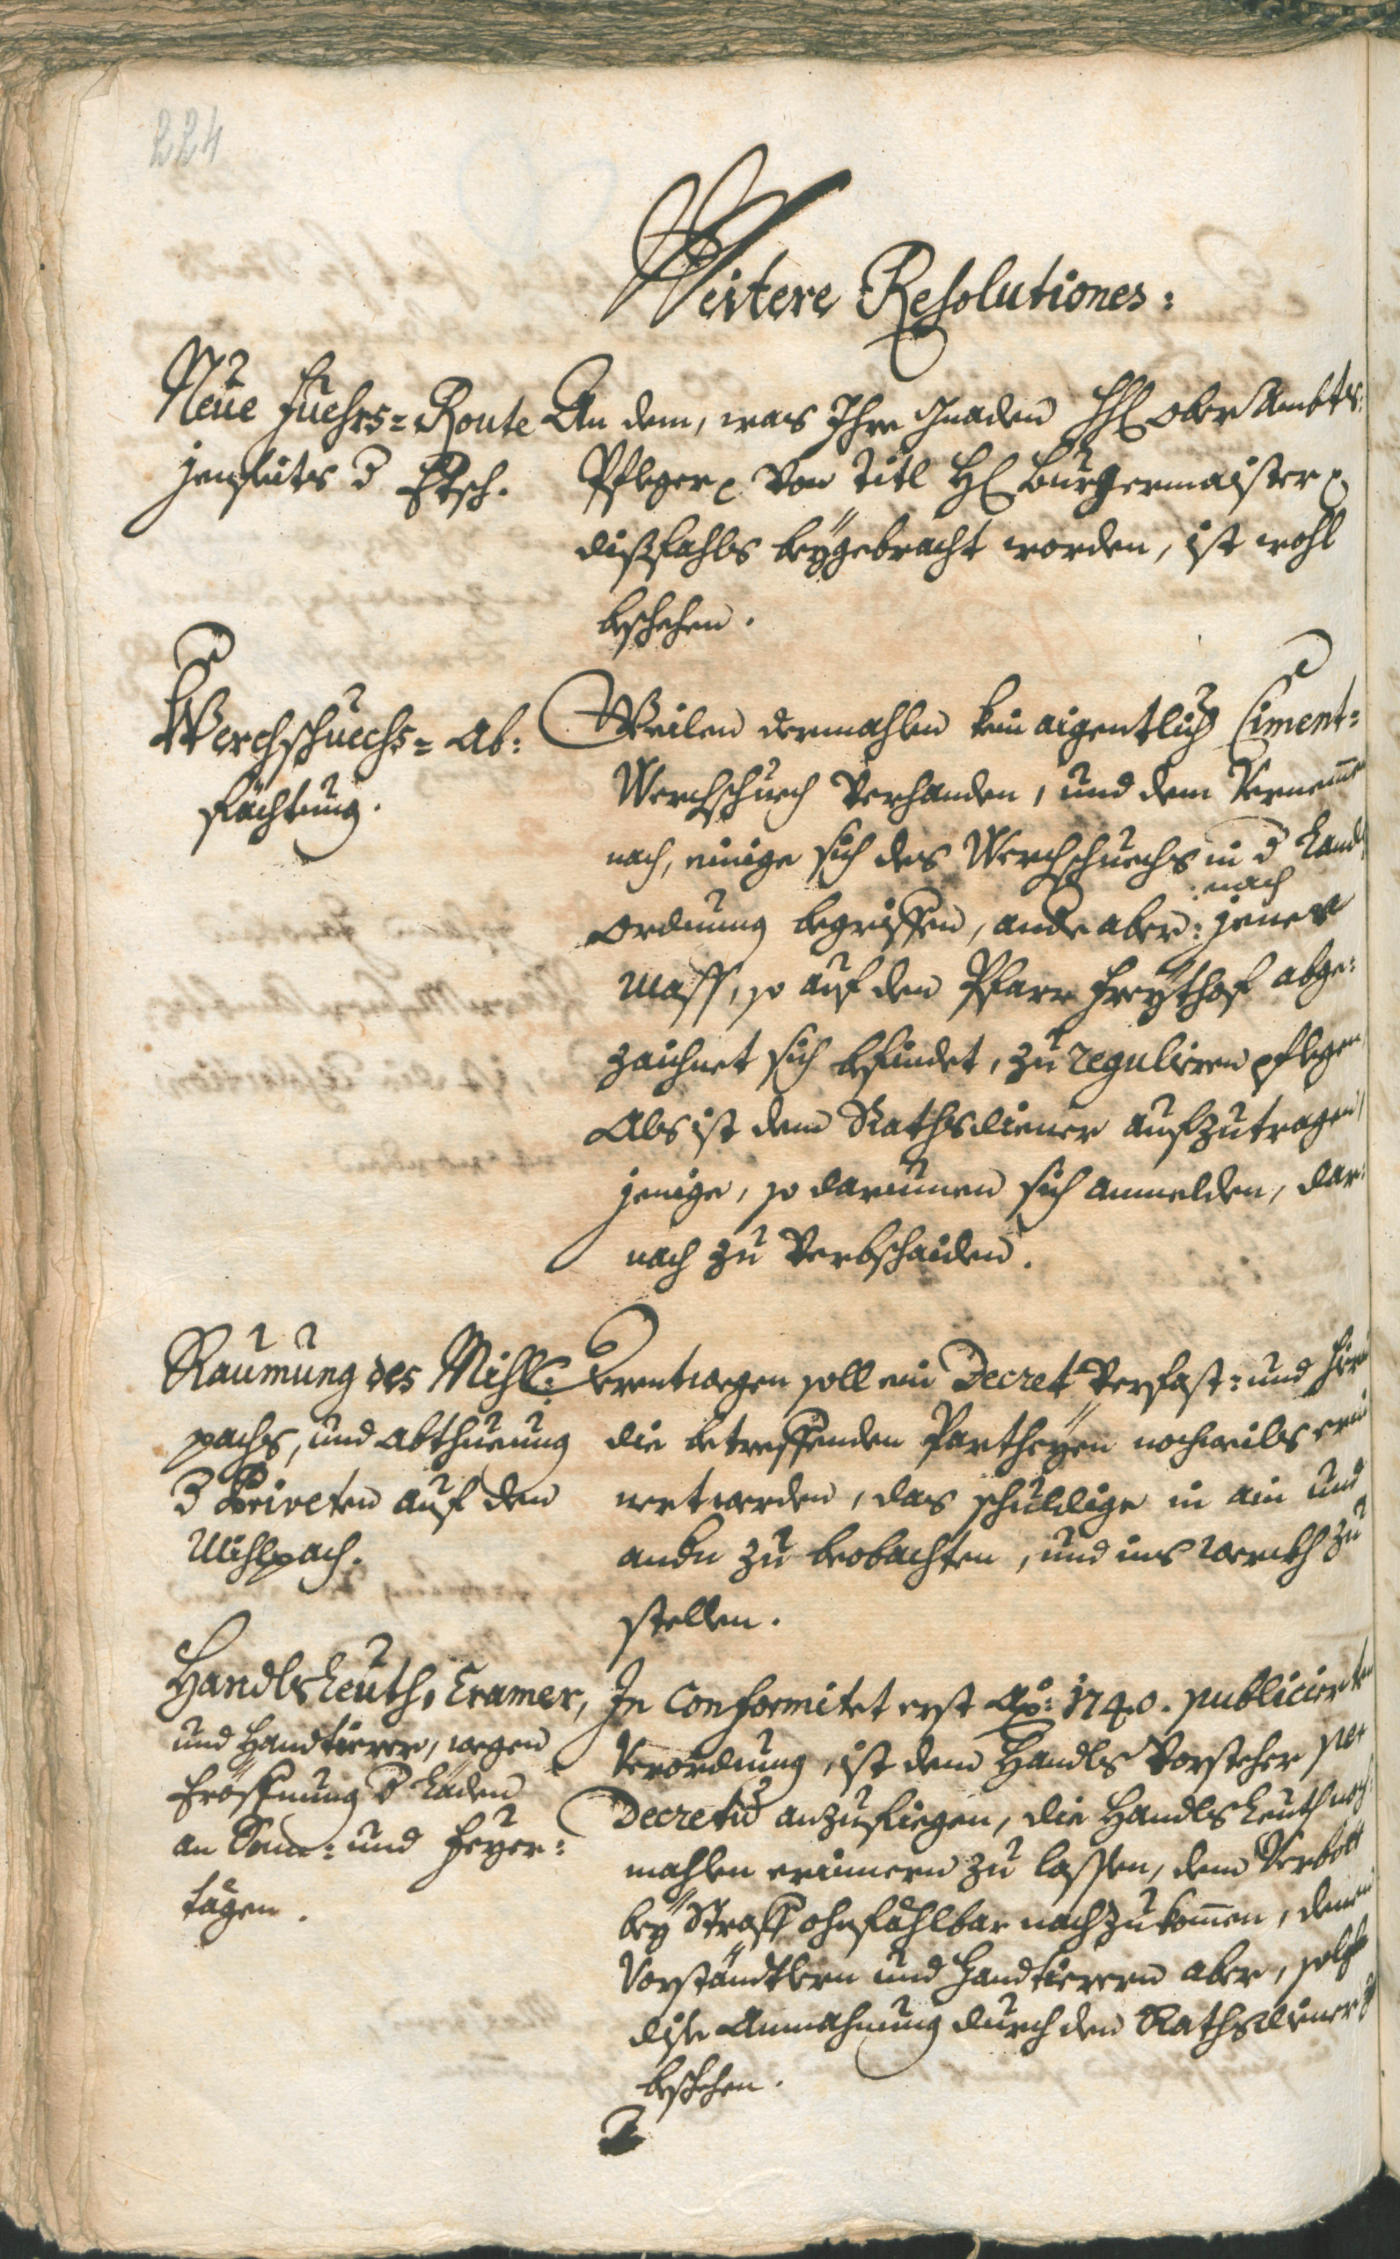 224
Weitere Resolutiones:
Neue Fuehrs=Route
jenseits d Etsch.
An dem, was Ihre Gnaden HH Ober Ambts
Pfleger von Titl H Burgermaister
dißfahls beÿgebracht worden, ist wohl
beschehen.
Werchschuechs=Ab:
fächtung.
Weilen dermahlen kein aigentlich Ciment=
Werchschuech verhanden, und dem Vernemen
nach, einige sich des Werchschuechs in d Lands
ordnung begriffen, ande aber: nach jener
Mass, so auf den Pfarr Freythof abge:
zaichnet sich befindet, zu reguliren pflegen
Als ist dem Rathsdiener aufzutragen,
jenige, so darumen sich anmelden, dar:
nach zu verbschaiden.
Raumung des Mihl:
pachs, und abthuung
d Priveten auf den
Mihlpach.
Derentwegen soll ein Decret verfast: und hierin
die betreffenden Partheÿen nochmals erin
nert werden, das schuldige in ain und
andn zu beobachten, und ins werckh zu
stellen.
Handlsleuth, Cramer,
und Handtierer, wegen
Eröffnung d Läden
an Sonn: und Feyer:
tägen.
In Conformitet erst Ao: 1740. publicierten
Verordnung, ist dem Handls Vorsteher per
Decretu anzufiegen, die Handlsleuth noch
mahlen erinnern zu lassen, dem Verbott
beÿ Straff ohnfählbar nachzukomen, denen
Vorständtlern und Handtierern aber, solle
dise Anmahnung durch den Rathsdiener
beschehen.